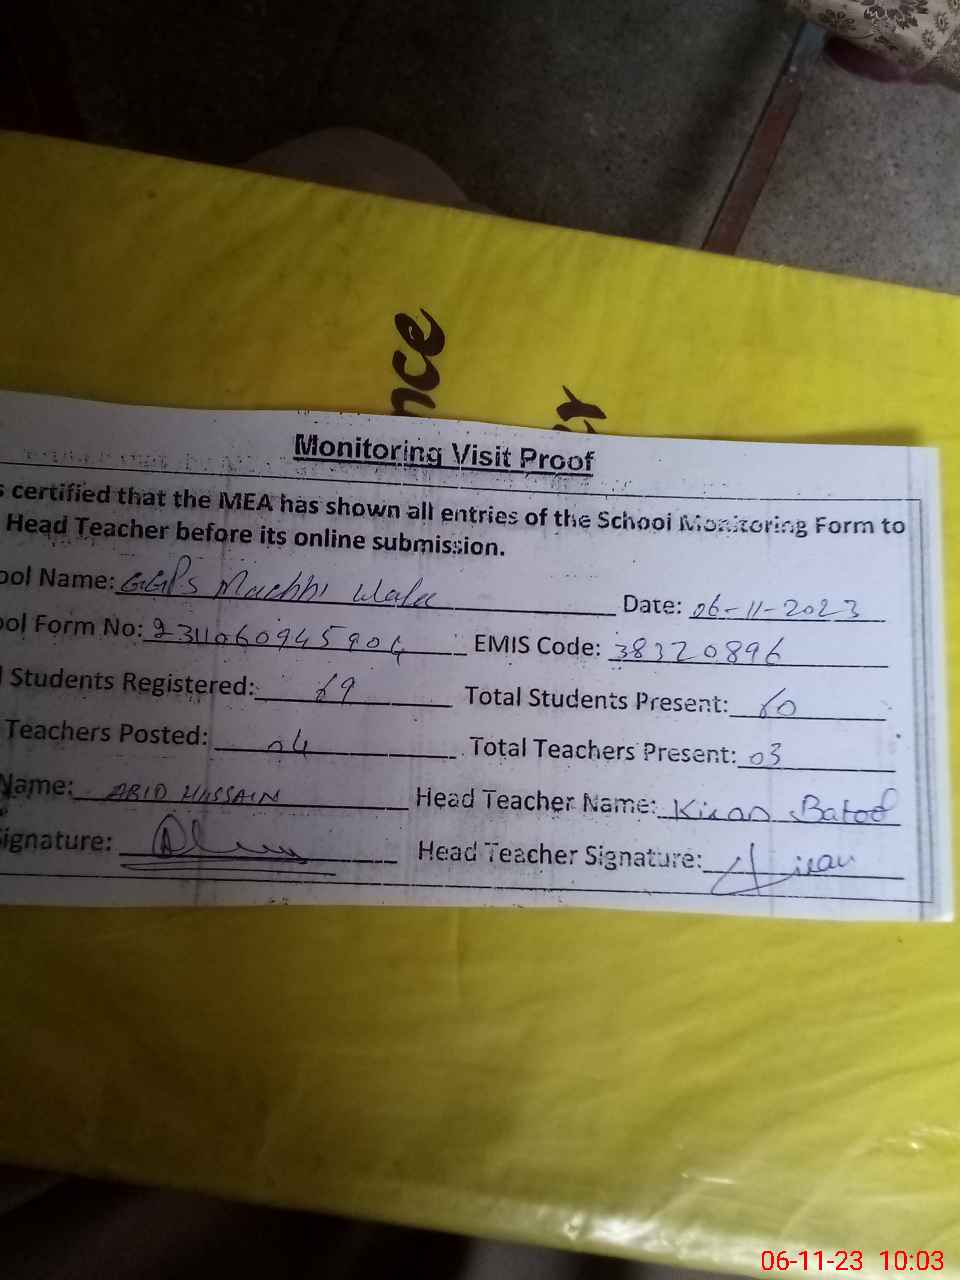 nce
er
Monitoring Visit Proof
s certified that the MEA has shown all entries of the School Monitoring Form to
Head Teacher before its online submission.
ool Name: GGPS Machhi Wala Date: 06-11-2023
ool Form No: 2311060945904 EMIS Code: 38320896
l Students Registered: 69 Total Students Present: 60
Teachers Posted: 04 Total Teachers Present: 03
Name: ABID HUSSAIN Head Teacher Name: Kiran Batool
ignature: Head Teacher Signature: Kiran
06-11-23 10:03